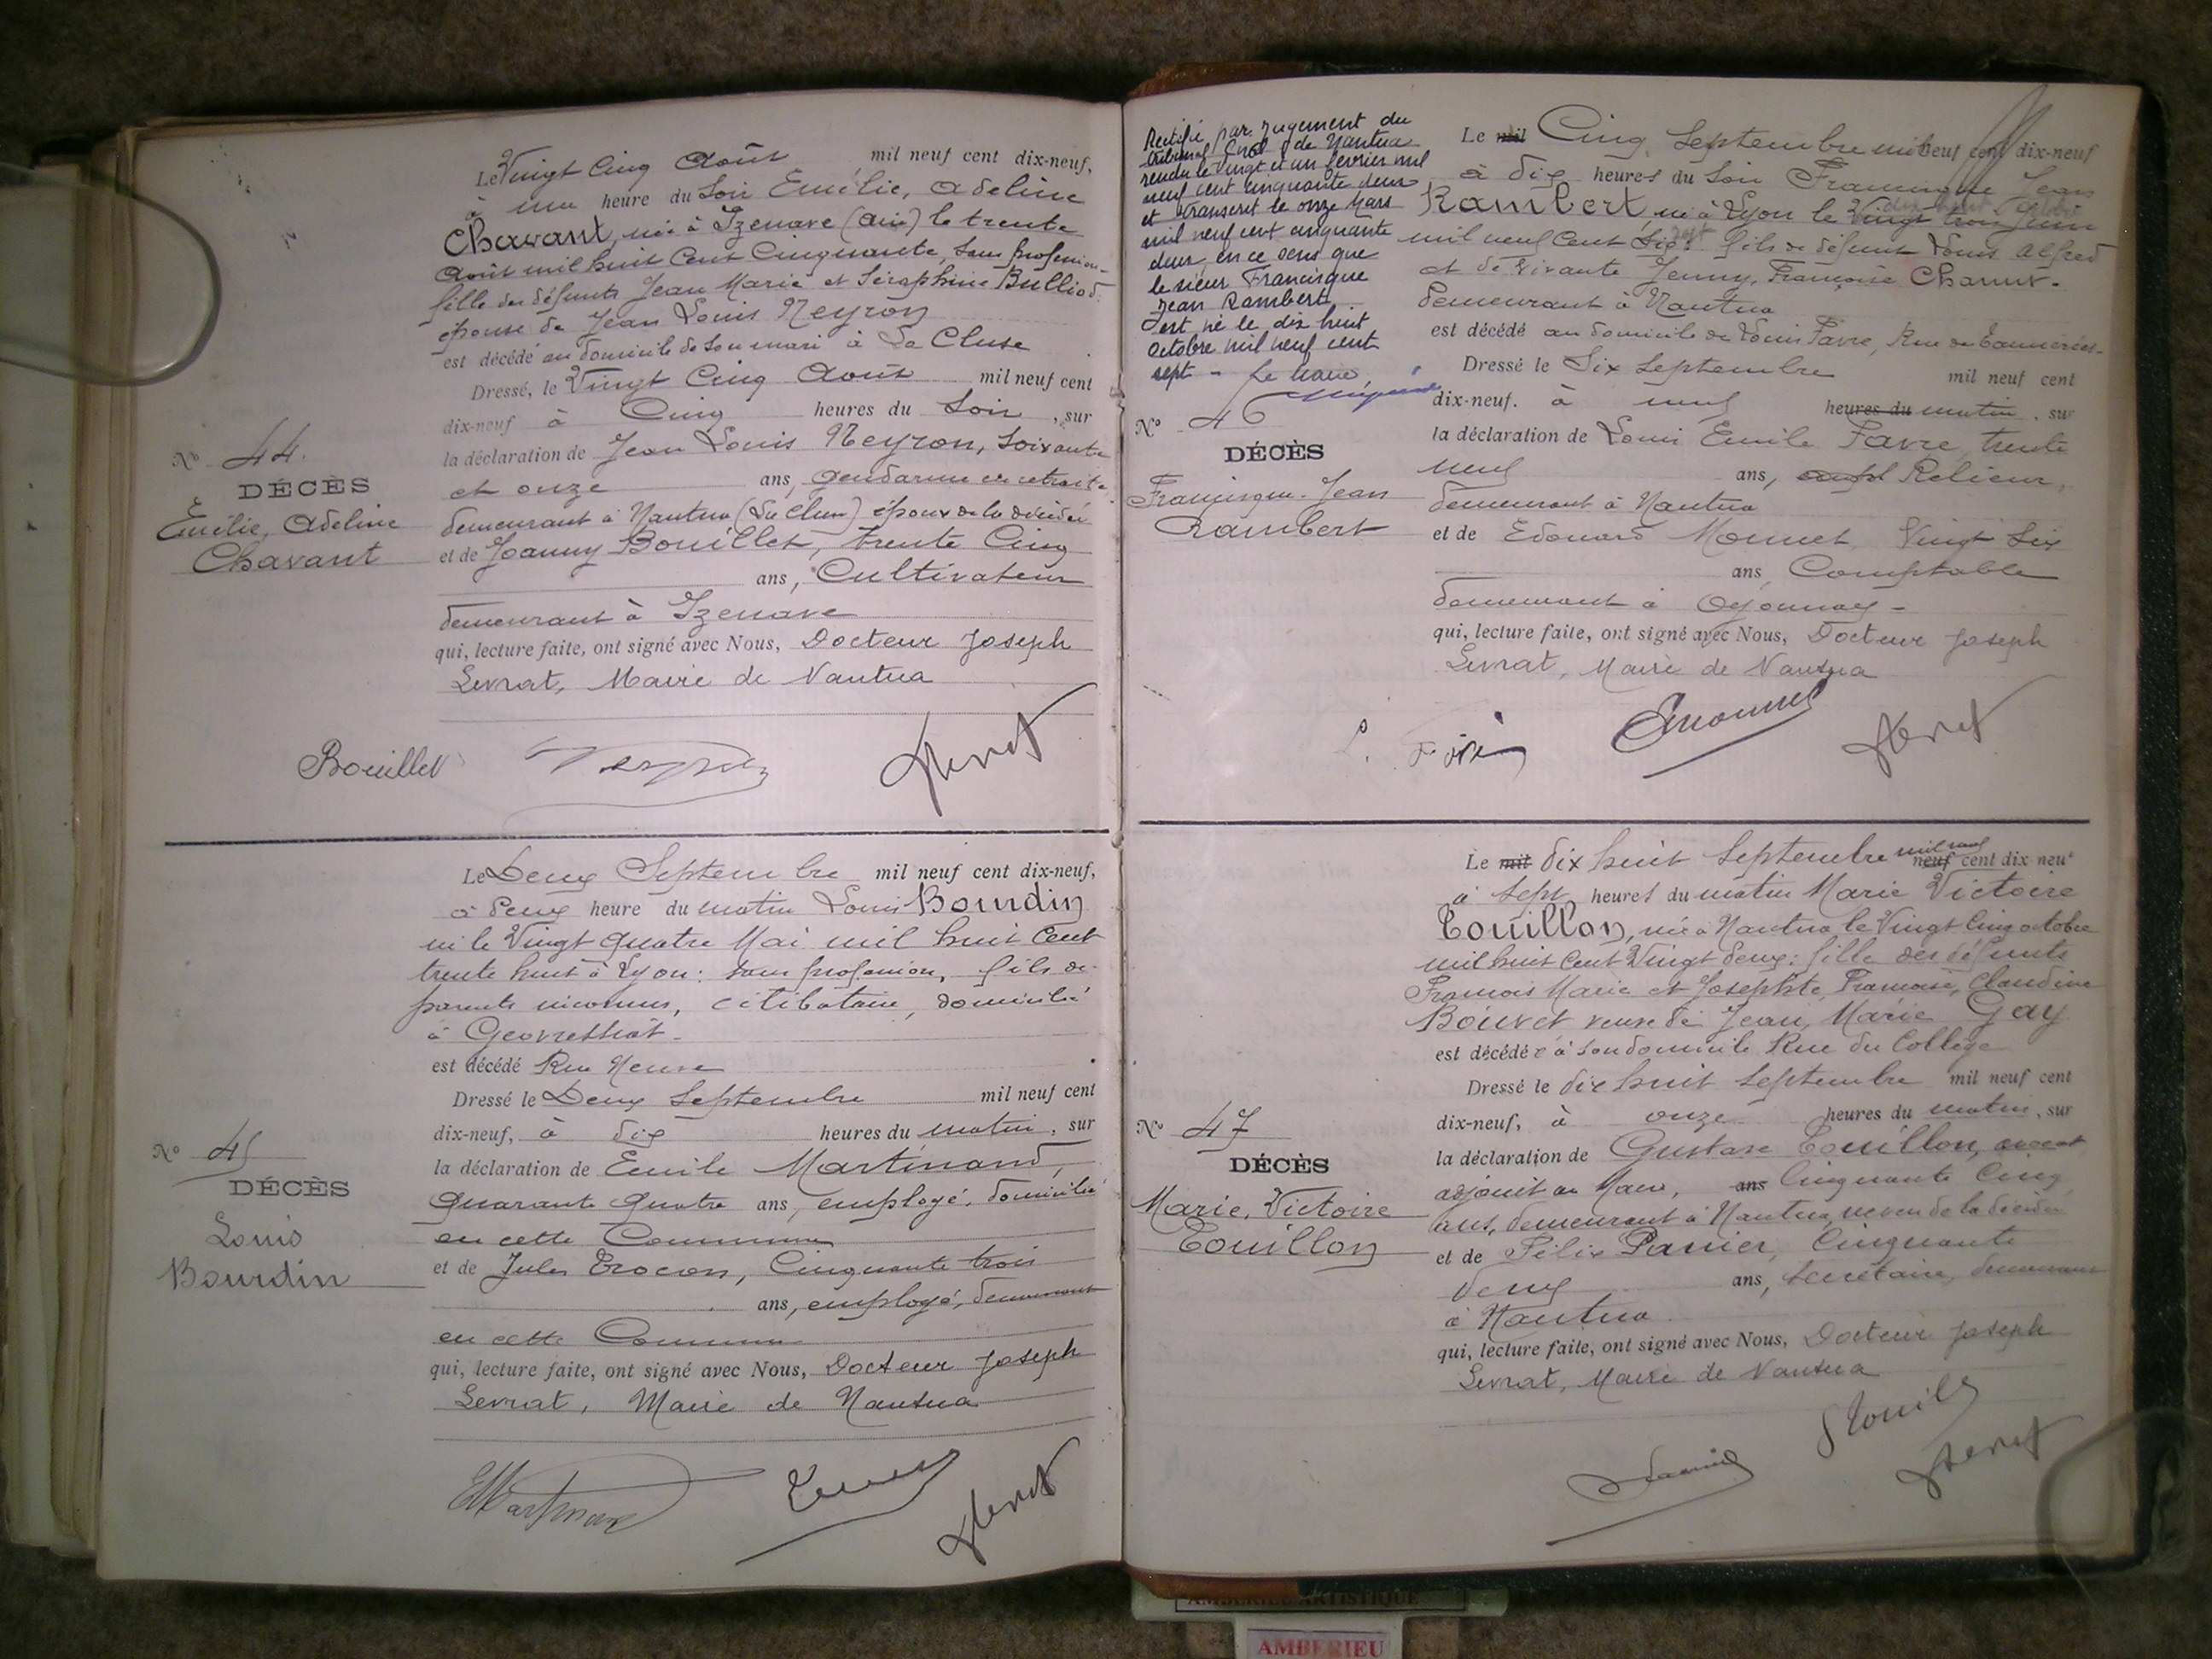 Le Vingt Cinq Août mil neuf cent dix-neuf,
à une heure du Soir Emélie, Adeline
Chavant, née à Izenave (Ain) le trente
Août mil huit Cent Cinquante, sans profession
fille des défunts Jean Marie et Séraphine Bulliod.
épouse de Jean Louis Neyron
est décédé au domicile de son mari à La Cluse
Dressé, le Vingt Cinq Août mil neuf cent
dix-neuf à Cinq heures du Soir, sur
la déclaration de Jean Louis Neyron, Soixante
et onze ans, gendarme en retraite
demeurant à Nantua (La Cluse) époux de la décédée
et de Joanny Bouillet, trente Cinq
ans, Cultivateur
demeurant à Izenave
qui, lecture faite, ont signé avec Nous, Docteur Joseph
Levrat, Maire de Nantua
Bouillet
No 44.
DÉCÈS
Emélie, Adeline
Chavant
Le Deux Septembre mil neuf cent dix-neuf,
à Deux heure du matin Louis Bourdin
né le Vingt quatre Mai mil huit Cent
trente huit à Lyon: sans profession, fils de
parents inconnus, célibataire, domicilié
à Geovressiat
est décédé Rue Neuve
Dressé le Deux Septembre mil neuf cent
dix-neuf, à dix heures du matin, sur
la déclaration de Emile Martinand,
Quarante Quatre ans, employé, domicilié
en cette Commune
et de Jules Crocon, Cinquante trois
ans, employé, demeurant
en cette Commune
qui, lecture faite, ont signé avec Nous, Docteur Joseph
Levrat, Maire de Nantua
No 45
DÉCÈS
Louis
Bourdin
Rectifié par Jugement du
tribunal Civil de Nantua
rendu le vingt et un février mil
neuf cent cinquante deux
et transcrit le onze Mars
mil neuf cent cinquante
deux, en ce sens que
le sieur Francisque
Jean Rambert
est né le dix huit
octobre mil neuf cent
sept - Le Maire
Le mil Cinq Septembre mil neuf cent dix-neuf
à dix heures du Soir Francisque Jean
Rambert, né à Lyon le Vingt trois Juin
mil neuf Cent Six: fils de défunt Louis Alfred
et de vivante Jenny, Françoise
demeurant à Nantua
est décédé au domicile de Louis Favre, Rue des Tanneries
Dressé le Six Septembre mil neuf cent
dix-neuf. à neuf heures du matin, sur
la déclaration de Louis Emile Favre, trente
neuf ans, Relieur,
demeurant à Nantua
et de Edouard Monnet, Vingt Six
ans, Comptable
demeurant à Oyonnax -
qui, lecture faite, ont signé avec Nous, Docteur Joseph
Levrat, Maire de Nantua
No 46
DÉCÈS
Francisque-Jean
Rambert
Le mil dix huit Septembre mil neuf neuf cent dix neuf
à Sept heures du matin Marie Victoire
Touillon, née à Nantua le Vingt Cinq octobre
mil huit Cent Vingt deux: fille des défunts
François Marie et Josephte, Françoise, Claudine
Bouvet veuve de Jean, Marie Gay
est décédée à son domicile Rue du Collège
Dressé le dix huit Septembre mil neuf cent
dix-neuf, à onze heures du matin, sur
la déclaration de Gustave Touillon, avocat
adjoint au Maire, ans Cinquante Cinq
ans, demeurant à Nantua, neveu de la décédée
et de Félix Panier, Cinquante
deux ans, Secrétaire, demeurant
à Nantua
qui, lecture faite, ont signé avec Nous, Docteur Joseph
Levrat, Maire de Nantua
No 47
DÉCÈS
Marie, Victoire
Touillon
AMBERIEU ARTISTIQUE
AMBERIEU